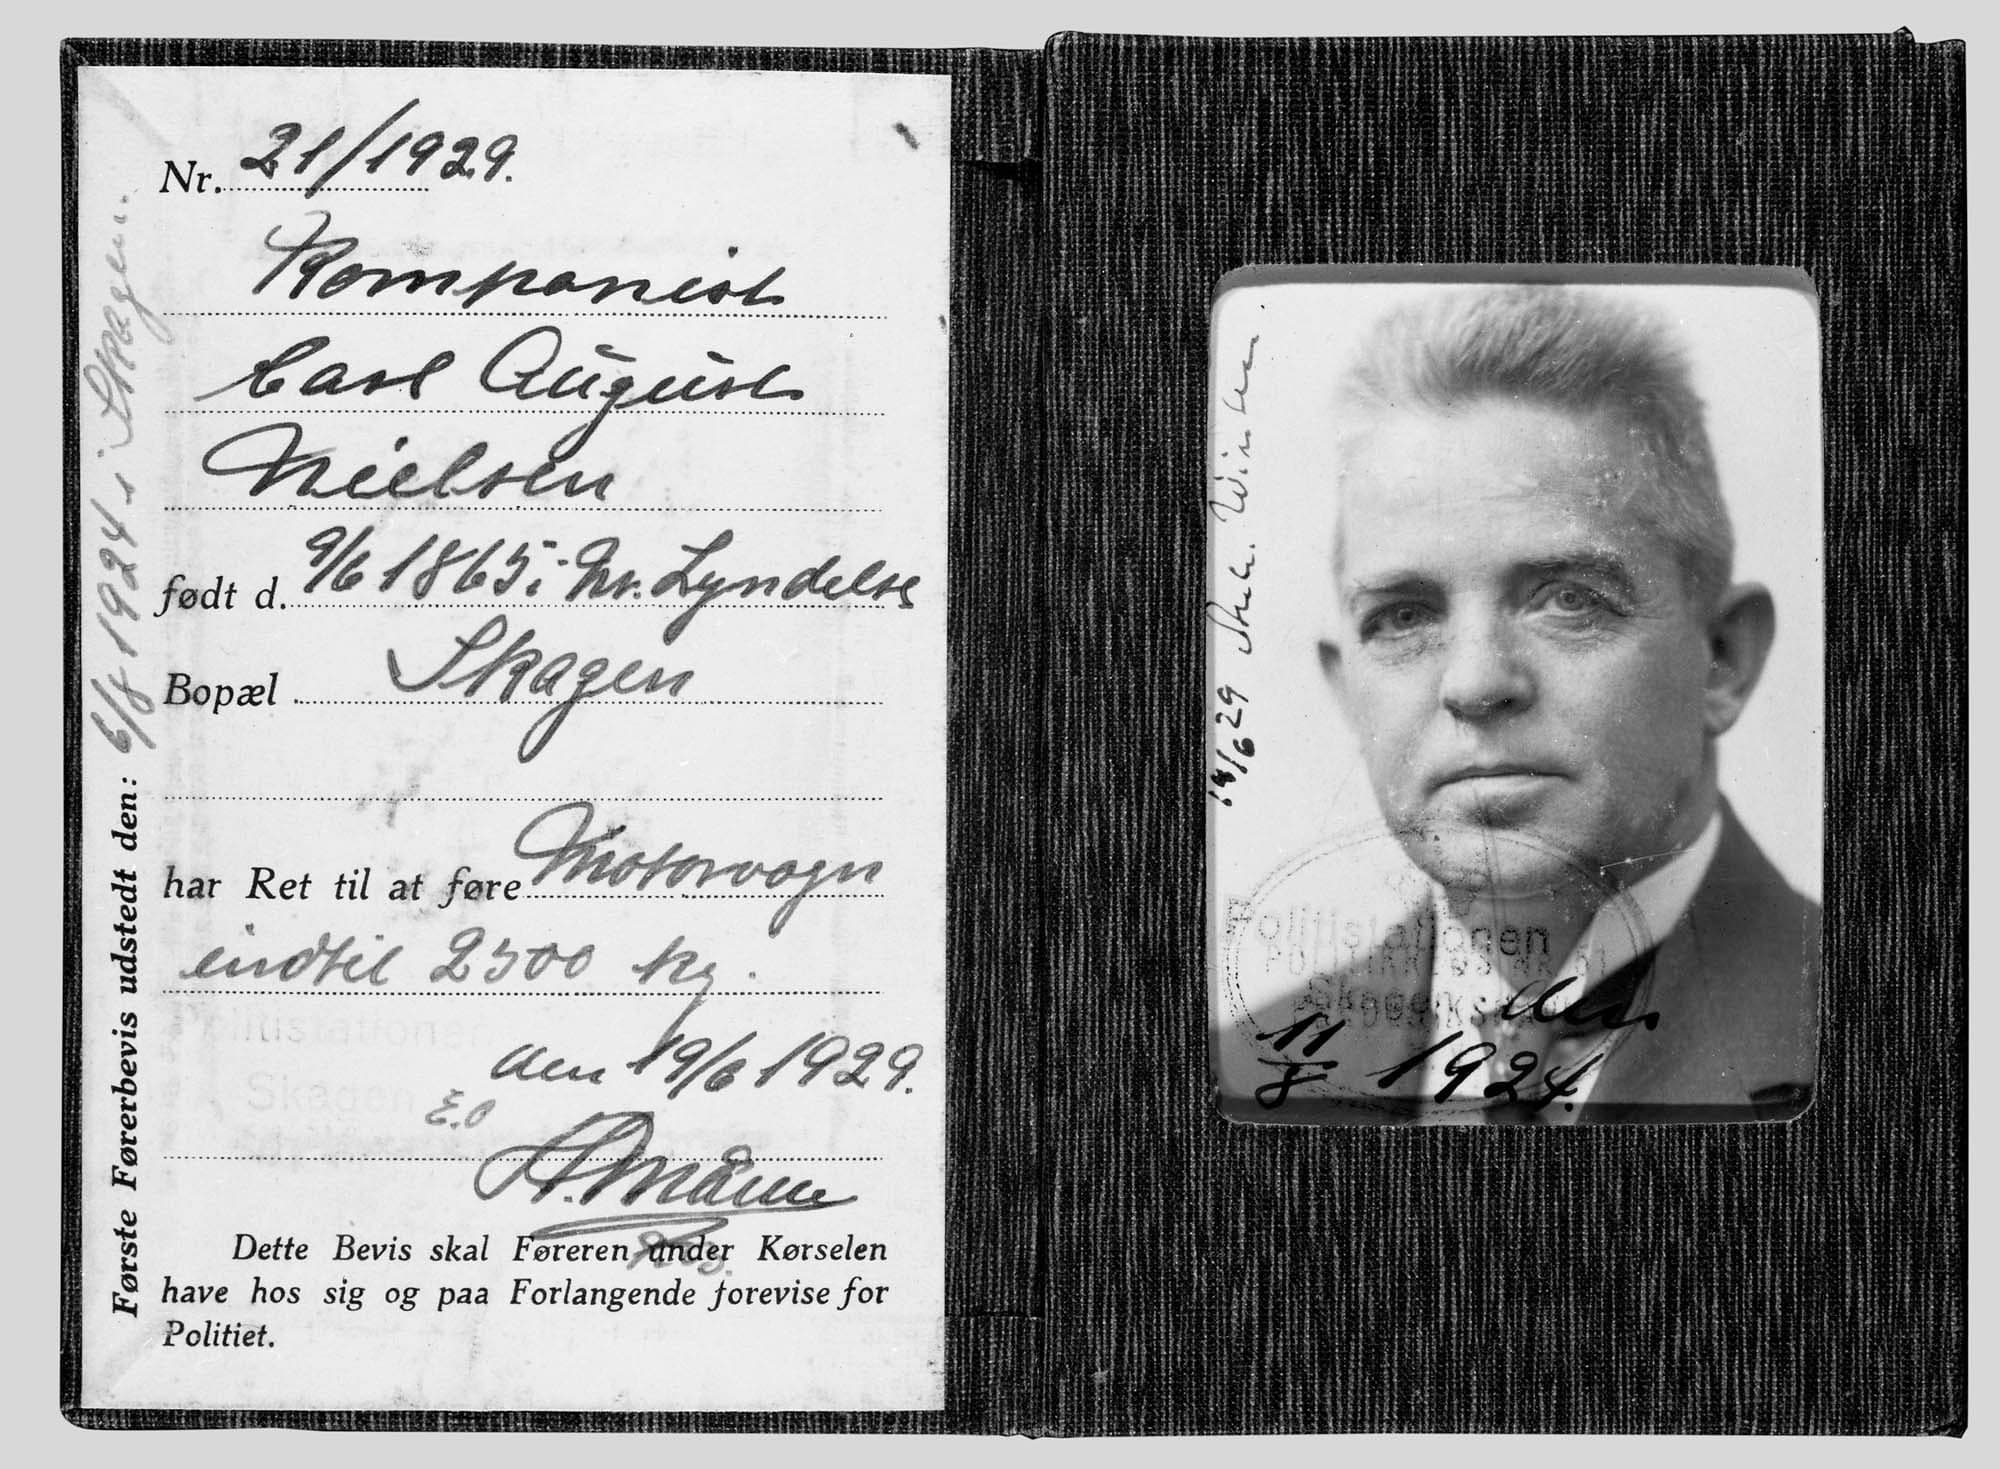 Nr. 21/1929.
Komponist
Carl August
Nielsen
født d. 9/6 1865 i Nr. Lyndelse
Bopæl Skagen
har Ret til at føre Motorvogn
indtil 2500 kg.
den 19/6 1929.
E.O
Dette Bevis skal Føreren under Kørselen
have hos sig og paa Forlangende forevise for
Politiet.
Første Førerbevis udstedt den: 6/8 1924 i Skagen.
Politistationen
Skagen
/6 29
Politistationen
Skagen den
11/8 1924.